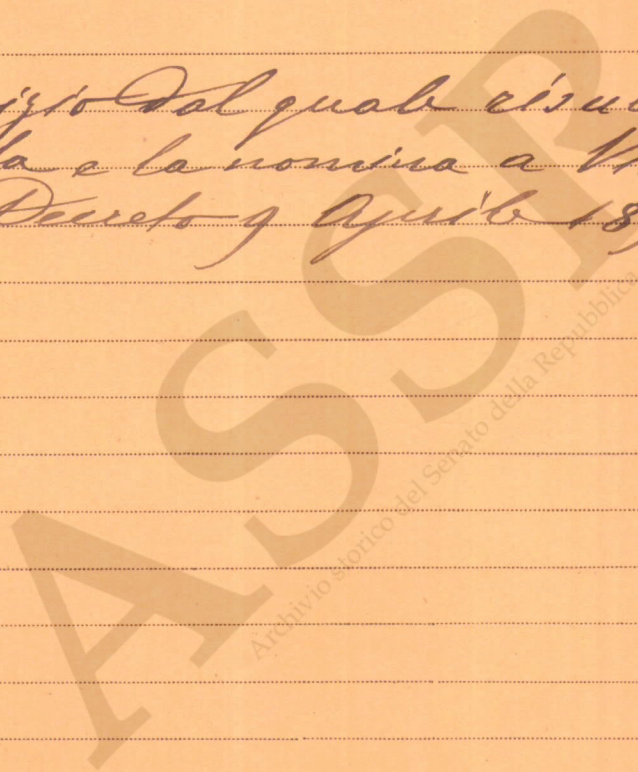 izio dal quale risu
la e la nomina a
Decreto 9 Aprile 18
ASSR
Archivio storico del Senato della Repubblica